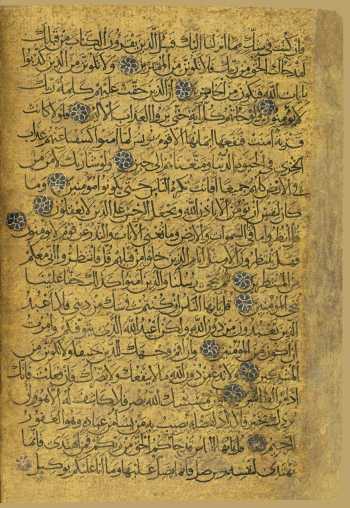 فإن كنت في شك مما أنزلنا إليك فسئل الذين يقرءون الكتاب من قبلك
لقد جاءك الحق من ربك فلا تكونن من الممترين ولا تكونن من الذين كذبوا
بآيات الله فتكون من الخاسرين إن الذين حقت عليهم كلمة ربك
لا يؤمنون ولو جاءتهم كل آية حتى يروا العذاب الأليم فلولا كانت
قرية آمنت فنفعها إيمانها إلا قوم يونس لما آمنوا كشفنا عنهم عذاب
الخزي في الحيوة الدنيا ومتعناهم إلى حين ولو شاء ربك لآمن من
في الأرض كلهم جميعا أفأنت تكره الناس حتى يكونوا مؤمنين وما
كان لنفس أن تؤمن إلا بإذن الله ويجعل الرجس على الذين لا يعقلون
قل انظروا ماذا في السموات والأرض وما تغني الآيات والنذر عن قوم لا يؤمنون
فهل ينتظرون إلا مثل أيام الذين خلوا من قبلهم قل فانتظروا إني معكم
من المنتظرين ثم ننجي رسلنا والذين آمنوا كذلك حقا علينا
ننج المؤمنين قل يا أيها الناس إن كنتم في شك من ديني فلا أعبد
الذين تعبدون من دون الله ولكن أعبد الله الذي يتوفاكم وأمرت
أن أكون من المؤمنين وأن أقم وجهك للدين حنيفا ولا تكونن من
المشركين ولا تدع من دون الله ما لا ينفعك ولا يضرك فإن فعلت فإنك
إذا من الظالمين وإن يمسسك الله بضر فلا كاشف له إلا هو وإن
يردك بخير فلا راد لفضله يصيب به من يشاء من عباده وهو الغفور
الرحيم قل يا أيها الناس قد جاءكم الحق من ربكم فمن اهتدى فإنما
يهتدي لنفسه ومن ضل فإنما يضل عليها وما أنا عليكم بوكيل